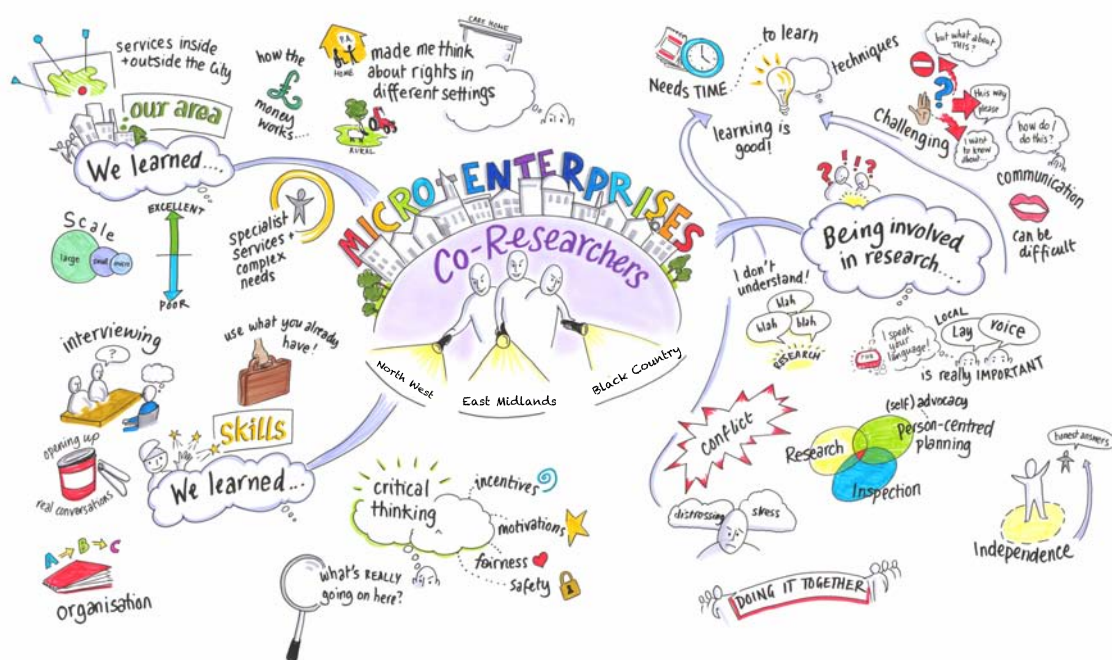 MICRO-ENTERPRISES
Co-Researchers
North West
East Midlands
Black Country
services inside
+outside the City
our area
We learned....
how the
£
money
works....
P.A.
HOME
RURAL
CARE HOME
made me think
about rights in
different settings
Scale
large
small
micro
EXCELLENT
POOR
specialist
services +
complex
needs
interviewing
?
use what you already
have!
opening up
real conversations
SKILLS
We learned...
A → B → C
organisation
critical
thinking
incentives
motivations
fairness
safety
what's REALLY
going on here?
Needs TIME
to learn
techniques
learning is
good!
but what about
THIS?
?
this way
please
I want
to know
about..
Challenging
how do I
do this?
communication
can be
difficult
?!!?
Being involved
in research...
I don't
understand!
blah
blah
blah
RESEARCH
I speak
your
language!
LOCAL
Lay
voice
is really IMPORTANT
conflict
distressing
stress
(self) advocacy
Person-centred
planning
Research
Inspection
honest answers
Independence
DOING IT TOGETHER